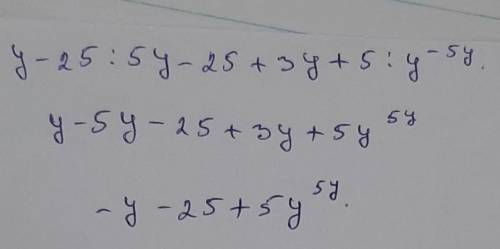 y - 25 : 5y - 25 + 3y + 5 : y^{-5y}.
y - 5y - 25 + 3y + 5y^{5y}
- y - 25 + 5y^{5y}.